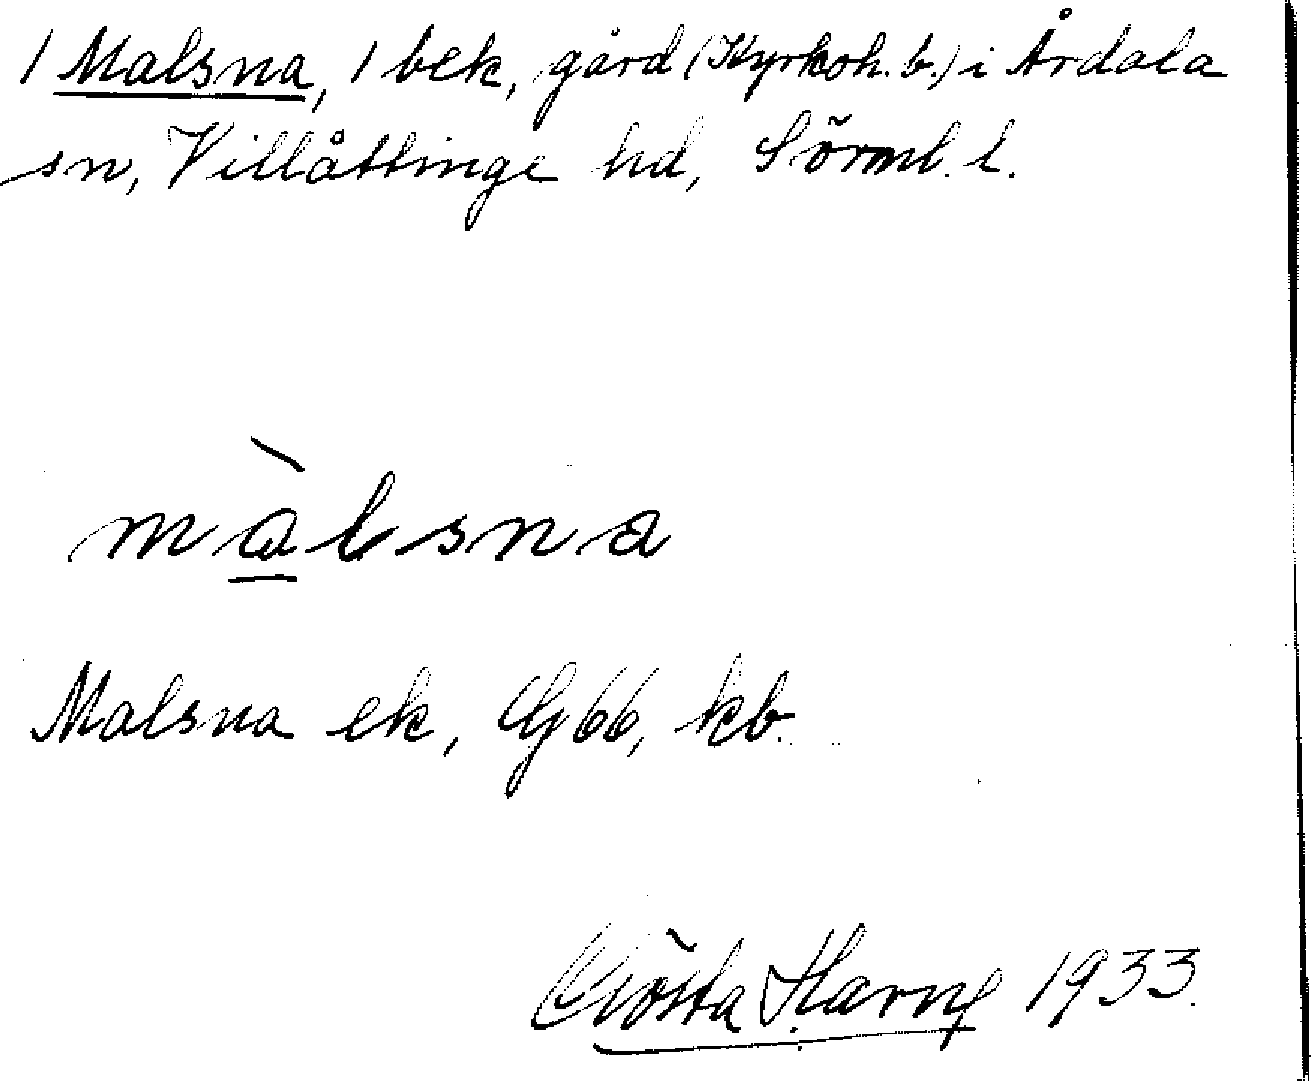 1 Malsna, 1 bek, gård (Kyrkoh. b.) i Årdala
sn, Villåttinge hd, Sörml. l.
màlsna
Malsna ek, G 66, kb.
Gösta 1933.